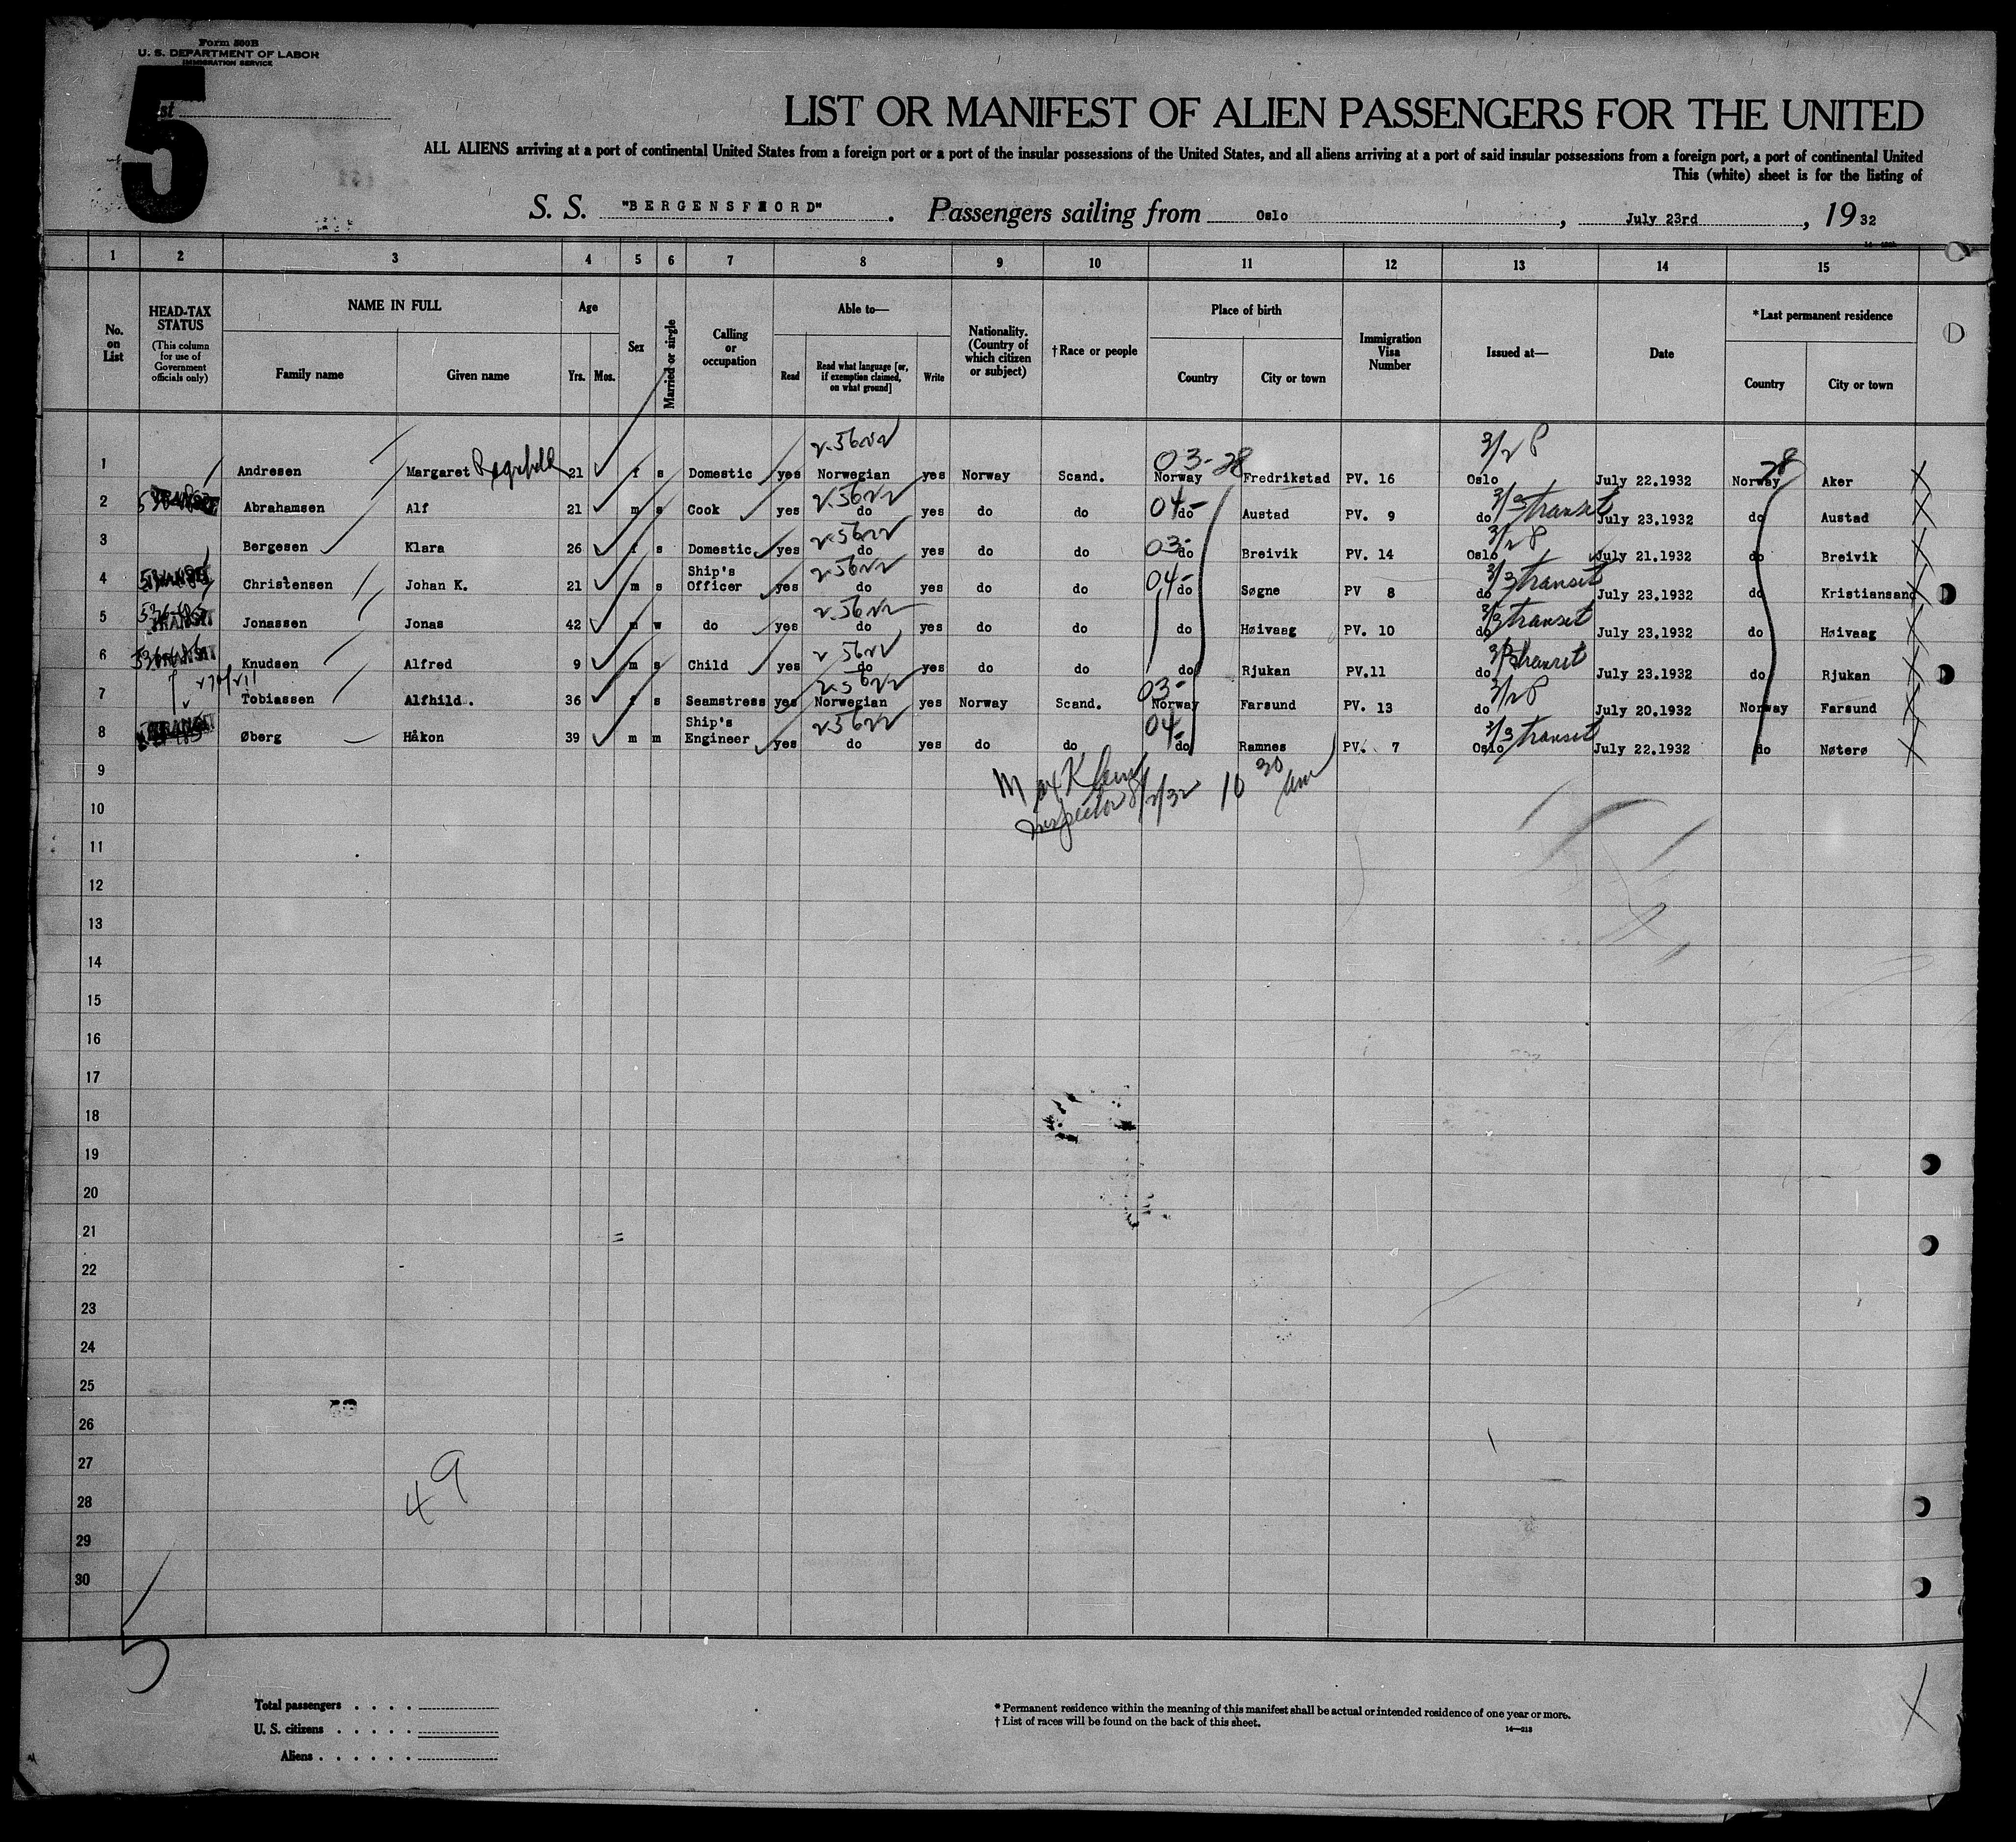 Form 500B
U. S. DEPARTMENT OF LABOR
IMMIGRATION SERVICE
5
LIST OR MANIFEST OF ALIEN PASSENGERS FOR THE UNITED
ALL ALIENS arriving at a port of continental United States from a foreign port or a port of the insular possessions of the United States, and all aliens arriving at a port of said insular possessions from a foreign port, a port of continental United
This (white) sheet is for the listing of
S. S. "BERGENSFJORD". Passengers sailing from Oslo, July 23rd, 1932
1 2 3 4 5 6 7 8 9 10 11 12 13 14 15
No. on List
HEAD-TAX STATUS
(This column for use of Government officials only)
NAME IN FULL
Family name Given name
Age
Yrs. Mos.
Sex
Married or single
Calling or occupation
Able to—
Read
Read what language [or, if exemption claimed, on what ground]
Write
Nationality. (Country of which citizen or subject)
†Race or people
Place of birth
Country City or town
Immigration Visa Number
Issued at—
Date
*Last permanent residence
Country City or town
1 Andresen Margaret 21 f s Domestic yes Norwegian yes Norway Scand. 03-28 Norway Fredrikstad PV. 16 Oslo July 22.1932 28 Norway Aker
2 TRANSIT Abrahamsen Alf 21 m s Cook yes do yes do do 04- do Austad PV. 9 do transit July 23.1932 do Austad
3 Bergesen Klara 26 f s Domestic yes do yes do do 03- do Breivik PV. 14 Oslo July 21.1932 do Breivik
4 TRANSIT Christensen Johan K. 21 m s Ship's Officer yes do yes do do 04- do Søgne PV 8 do transit July 23.1932 do Kristiansand
5 TRANSIT Jonassen Jonas 42 m w do yes do yes do do do Høivaag PV. 10 do transit July 23.1932 do Høivaag
6 TRANSIT Knudsen Alfred 9 m s Child yes do yes do do do Rjukan PV.11 do transit July 23.1932 do Rjukan
7 Tobiassen Alfhild. 36 f s Seamstress yes Norwegian yes Norway Scand. 03- Norway Farsund PV. 13 do July 20.1932 Norway Farsund
8 TRANSIT Øberg Håkon 39 m m Ship's Engineer yes do yes do do 04- do Ramnes PV. 7 Oslo transit July 22.1932 do Nøterø
9
Inspector 8/2/32 10 30 am
10
11
12
13
14
15
16
17
18
19
20
21
22
23
24
25
26
27
28
29
30
49
5
Total passengers . . . .
U. S. citizens . . . . .
Aliens . . . . . .
* Permanent residence within the meaning of this manifest shall be actual or intended residence of one year or more.
† List of races will be found on the back of this sheet.
14—213